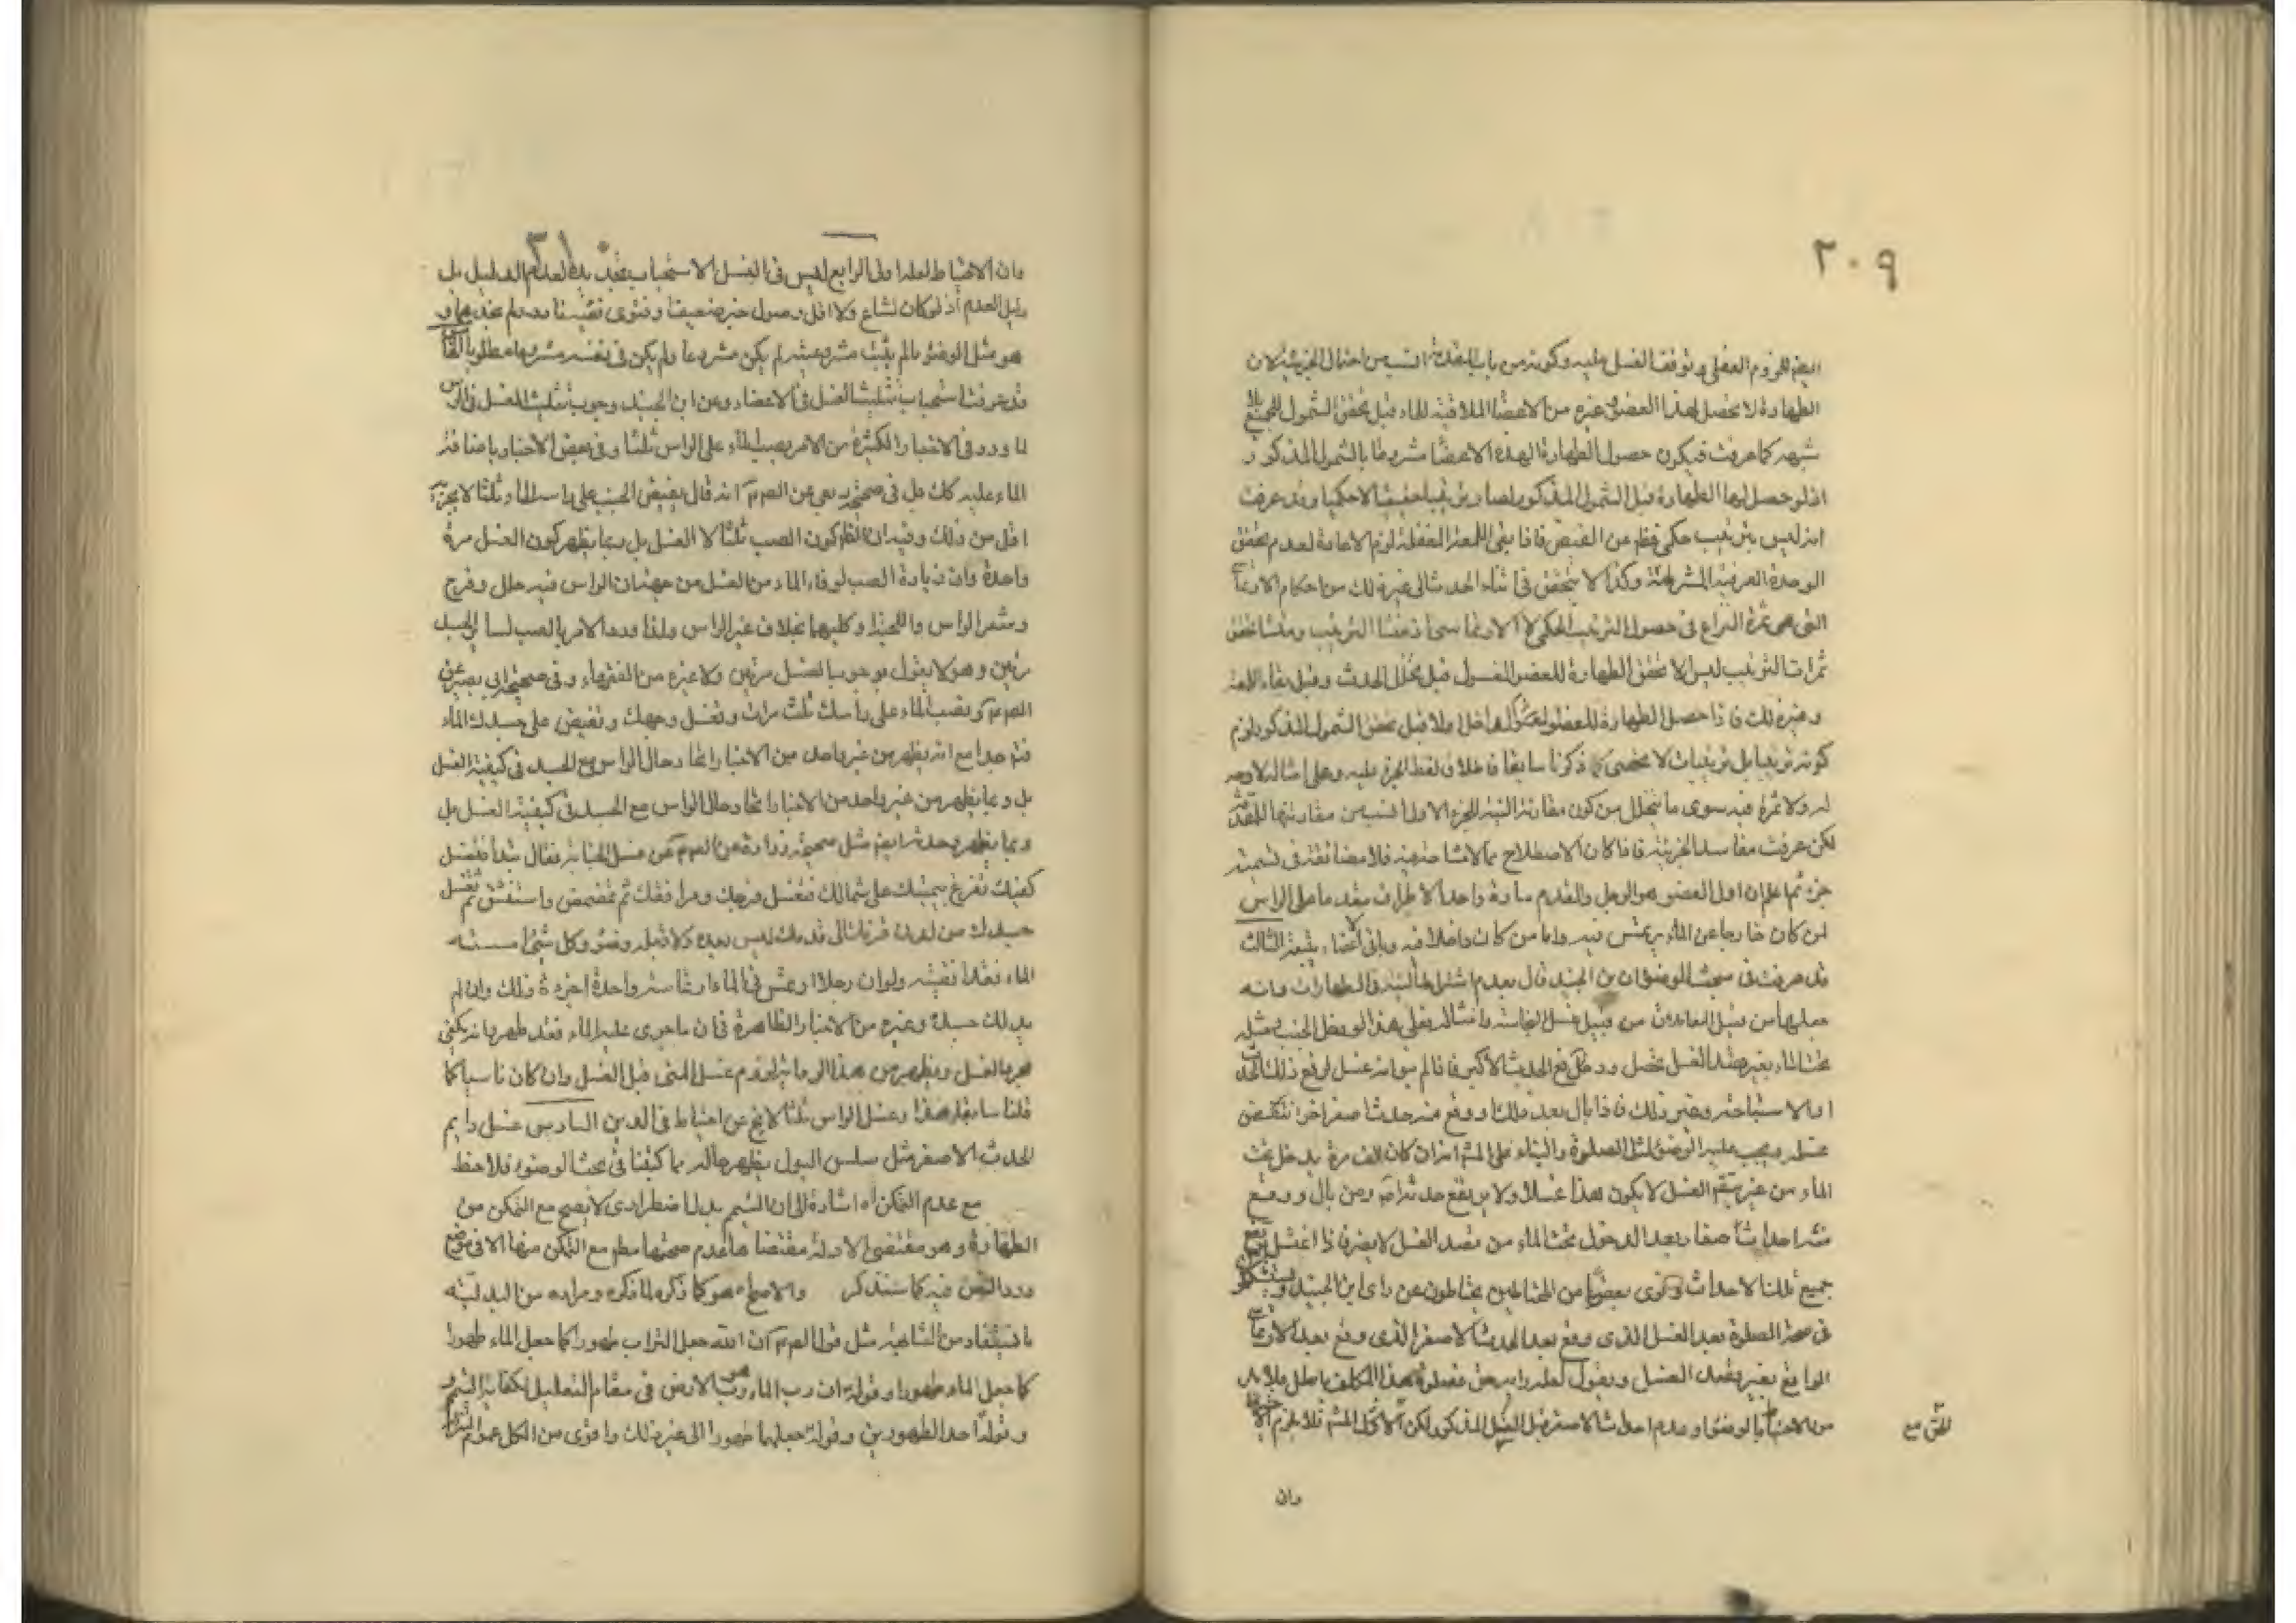 ٢٠٩
ايضا للزوم العقلي و توقف الغسل عليه وكونه من باب المقدمة انسب من احتمال الجزئية لان
الطهارة لا تحصل لهذا العضو وغيره من الاعضاء الملاقية للماء قبل تحقق الشمول للجميع
شبهه كما عرفت فيكون حصول الطهارة لهذه الاعضاء مشروطا بالشمول المذكور
اذ لو حصل لها الطهارة قبل الشمول المذكور لصار ترتيبا حقيقيا لا حكميا وقد عرفت
انه ليس بترتيب حكمي فظهر عن الفيض فاذا بقي اللمعة المغفلة لزم الاعادة لعدم تحقق
الوحدة العرفية المشروطة وكذا لا يتحقق في اثناء الحدث الى غير ذلك من احكام الارتماس
التي هي ثمرة النزاع في حصول الترتيب الحكمي لا الارتماسي اذ منشأ الترتيب ومنشا تحقق
ثمرات الترتيب ليس الا تحقق الطهارة للعضو المغسول قبل تخلل الحدث وقبل بقاء اللمعة
وغير ذلك فاذا حصل الطهارة للعضو داخلا اولا قبل تحقق الشمول المذكور لزم
كونه ترتيبا بل ترتيبات لا تحصى كما ذكرنا سابقا فاطلاق لفظ الجزء عليه وعلى امثاله لا وجه
له ولا ثمرة فيه سوى ما يتخيل من كون مقارنة النية للجزء الاول انسب من مقارنتها للمقدمة
لكن عرفت مفاسد الجزئية فاذا كان الاصطلاح مما لا مشاحة فيه فلا مضايقة في تسميته
جزء ثم اعلم ان اول العضو هو الرجل والقدم عادة واحدا لاطراف مقدما على الراس
لمن كان خارجا عن الماء يرتمس فيه واما من كان داخلا فيه وباقي الاعضاء يتبعه الثالث
قد عرفت في مبحث الوضوء ان ابن الجنيد قال بعدم اشتراط النية في الطهارات وانه
جعلها من قبيل المعاملات من قبيل غسل النجاسة وامثاله فعلى هذا لو دخل الجنب مثله
تحت الماء بغير قصد الغسل يحصل ورفع الحدث الاكبر فاذا لم ينو انه غسل لرفع ذلك الحدث
او الاستباحة وغير ذلك فاذا بال بعد ذلك او وقع منه حدث اصغر اخر انتقض
غسله ويجب عليه الوضوء لمثل الصلوة والبناء على المشهور انه ان كان الف مرة يدخل تحت
الماء من غير قصد الغسل لا يكون هذا غسلا ولا يرتفع حدثه اصلا ومن بال ووقع
منه احداث اصغار بعد الدخول تحت الماء من قصد الغسل لا يضر فاذا اغتسل يرتفع
جميع تلك الاحداث وترى بعضا من المحتاطين يحتاطون عن راى ابن الجنيد ويستشكل
في صحة الصلوة بعد الغسل الذى وقع بعد الحدث الاصغر الذى وقع بعد الارتماس
الواقع بغير قصد الغسل ويقول لعله راى حق فصلوة هذا المكلف باطل فلا بد
من الاحتياط بالوضوء وعدم احداث الاصغر قبل الغسل المذكور لكن الاول المشهور فلا يلزم الاحتياط
الحق مع
وان
وان الاحتياط لعله اولى الرابع ليس في الغسل الاستحباب تجديد لعدم الدليل بل
دليل العدم اذ لو كان لشاع ولا اقل وصول خبر ضعيف او فتوى فقيه فاذا لم نجد هما و
هو مثل الوضوء ما لم يثبت مشروعيته لم يكن مشروعا ولم يكن في نفسه مشروعا مطلوبا الخامس
قد عرفت استحباب تثليث الغسل في الاعضاء وعن ابن الجنيد وجوب تثليث الغسل في الراس
لما ورد في الاخبار الكثيرة من الامر بصب الماء على الراس ثلثا وفي بعض الاخبار باضافة
الماء عليه كك بل في صحيحة ربعي عن الصم انه قال يفيض الجنب على راسه الماء ثلثا لا يجزيه
اقل من ذلك وفيه ان الظاهر كون الصب ثلثا لا الغسل بل ربما يظهر كون الغسل مرة
واحدة وان زيادة الصب لوفاء الماء من الغسل من جهة ان الراس فيه خلل وفرج
وشعر الراس واللحية وكليهما بخلاف غير الراس ولذا ورد الامر بالصب لسائر الجسد
مرتين وهو لا يقول بوجوب الغسل مرتين ولا غيره من الفقهاء وفي صحيحة ابى بصير عن
الصم وتصب الماء على راسك ثلث مرات وتغسل وجهك وتفيض على جسدك الماء
فتم جدا مع انه يظهر من غير واحد من الاخبار اتحاد حال الراس مع الجسد في كيفية الغسل
بل ربما يظهر من غير واحد من الاخبار اتحاد حال الراس مع الجسد في كيفية الغسل بل
ربما يظهر وحدته ايضا مثل صحيحة زرارة عن الصم عن غسل الجنابة فقال تبدأ فتغسل
كفيك تفرغ بيمينك على شمالك فتغسل فرجك ومرافقك ثم تمضمض واستنشق ثم تغسل
جسدك من لدن قرنك الى قدميك ليس بعده ولا قبله وضوء وكل شئ امسسته
الماء فقد انقيته ولو ان رجلا ارتمس في الماء ارتماسة واحدة اجزءه ذلك وان لم
يدلك جسده وغيره من الاخبار الظاهرة في ان ما جرى عليه الماء فقد طهر بانه يكفي
مجرد الغسل ويظهر من هذا الرواية لزوم غسل المنى قبل الغسل وان كان ناسيا كما
قلنا سابقا هذا وغسل الراس ثلثا لا يخ عن احتياط في الدين السادس غسل دايم
الحدث الاصغر مثل سلس البول يظهر حاله مما كتبنا في بحث الوضوء فلاحظ
مع عدم التمكن اه اشارة الى ان التيمم بدل اضطرارى لا يصح مع التمكن من
الطهارة وهو مقتضى الادلة مقتضاها عدم صحتها مطم مع التمكن منها الا في موضع
ورد النص فيه كما سنذكر والاصح هو كما ذكره لما ذكره ومراده من البدلية
ما يستفاد من التشابه مثل قول الصم ان الله جعل التراب طهورا كما جعل الماء طهورا
كما جعل الماء طهورا وقوله ان رب الماء هو رب الارض في مقام التعليل لكفاية التيمم و
وقوله احد الطهورين وقوله جعلهما طهورا الى غير ذلك واقوى من الكل عموم المنزلة